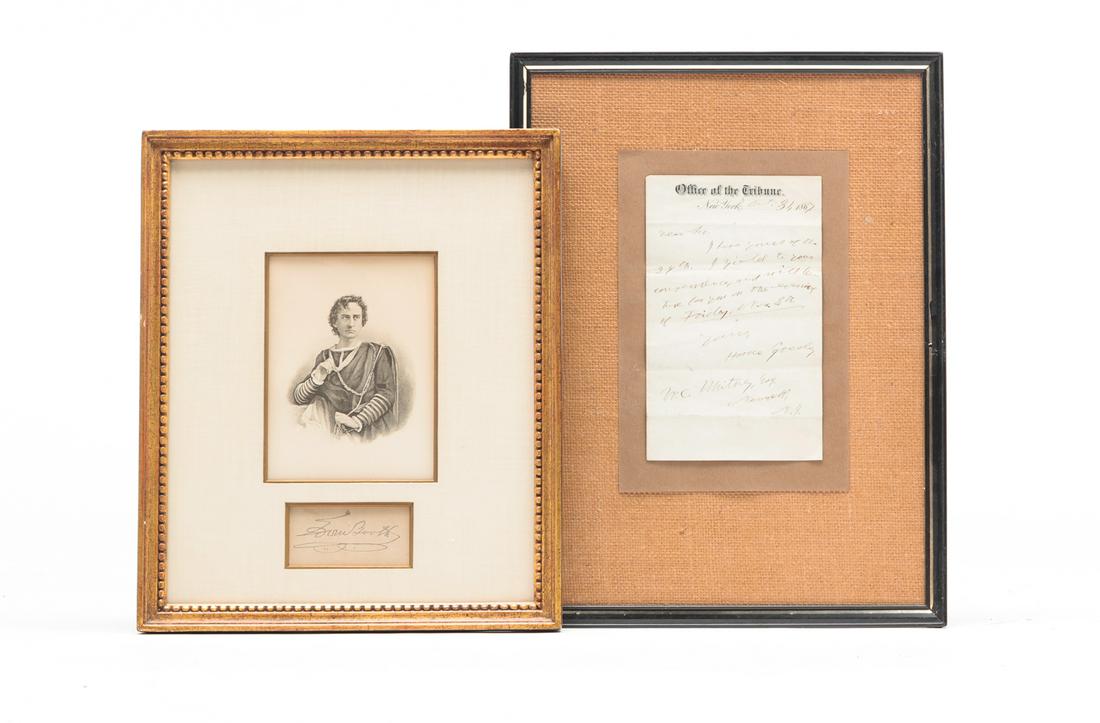 Edwin Booth
Office of the Tribune.
New York, Oct. 31, 1867
Dear Sir:
I have yours of the
29th. I yield to your
and will
you on the evening
of Friday, Nov. 8th
Yours,
Horace Greeley
W.C. Whitney, Esq
Newark,
N.J.